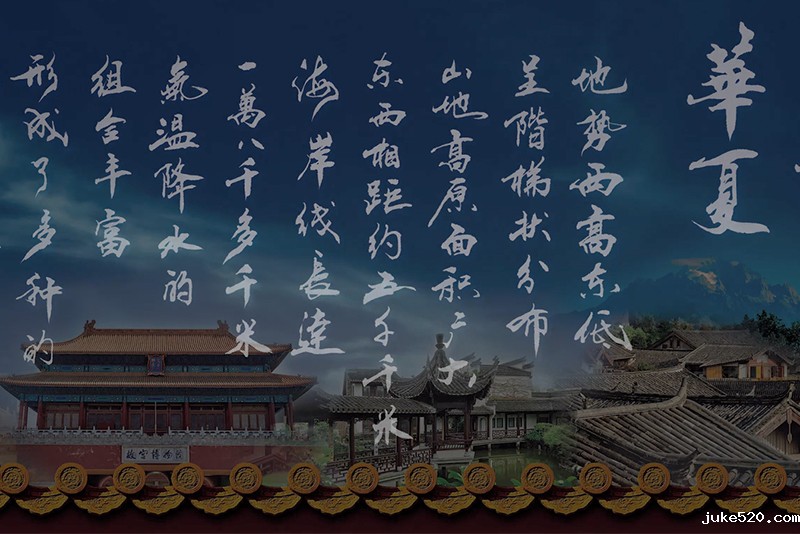 華夏
地势西高东低
呈階梯状分布
山地高原面积广大
东西相距约五千千米
海岸线長達
一萬八千多千米
氣温降水的
组合丰富
形成了多种的
故宫博物院
juke520.com